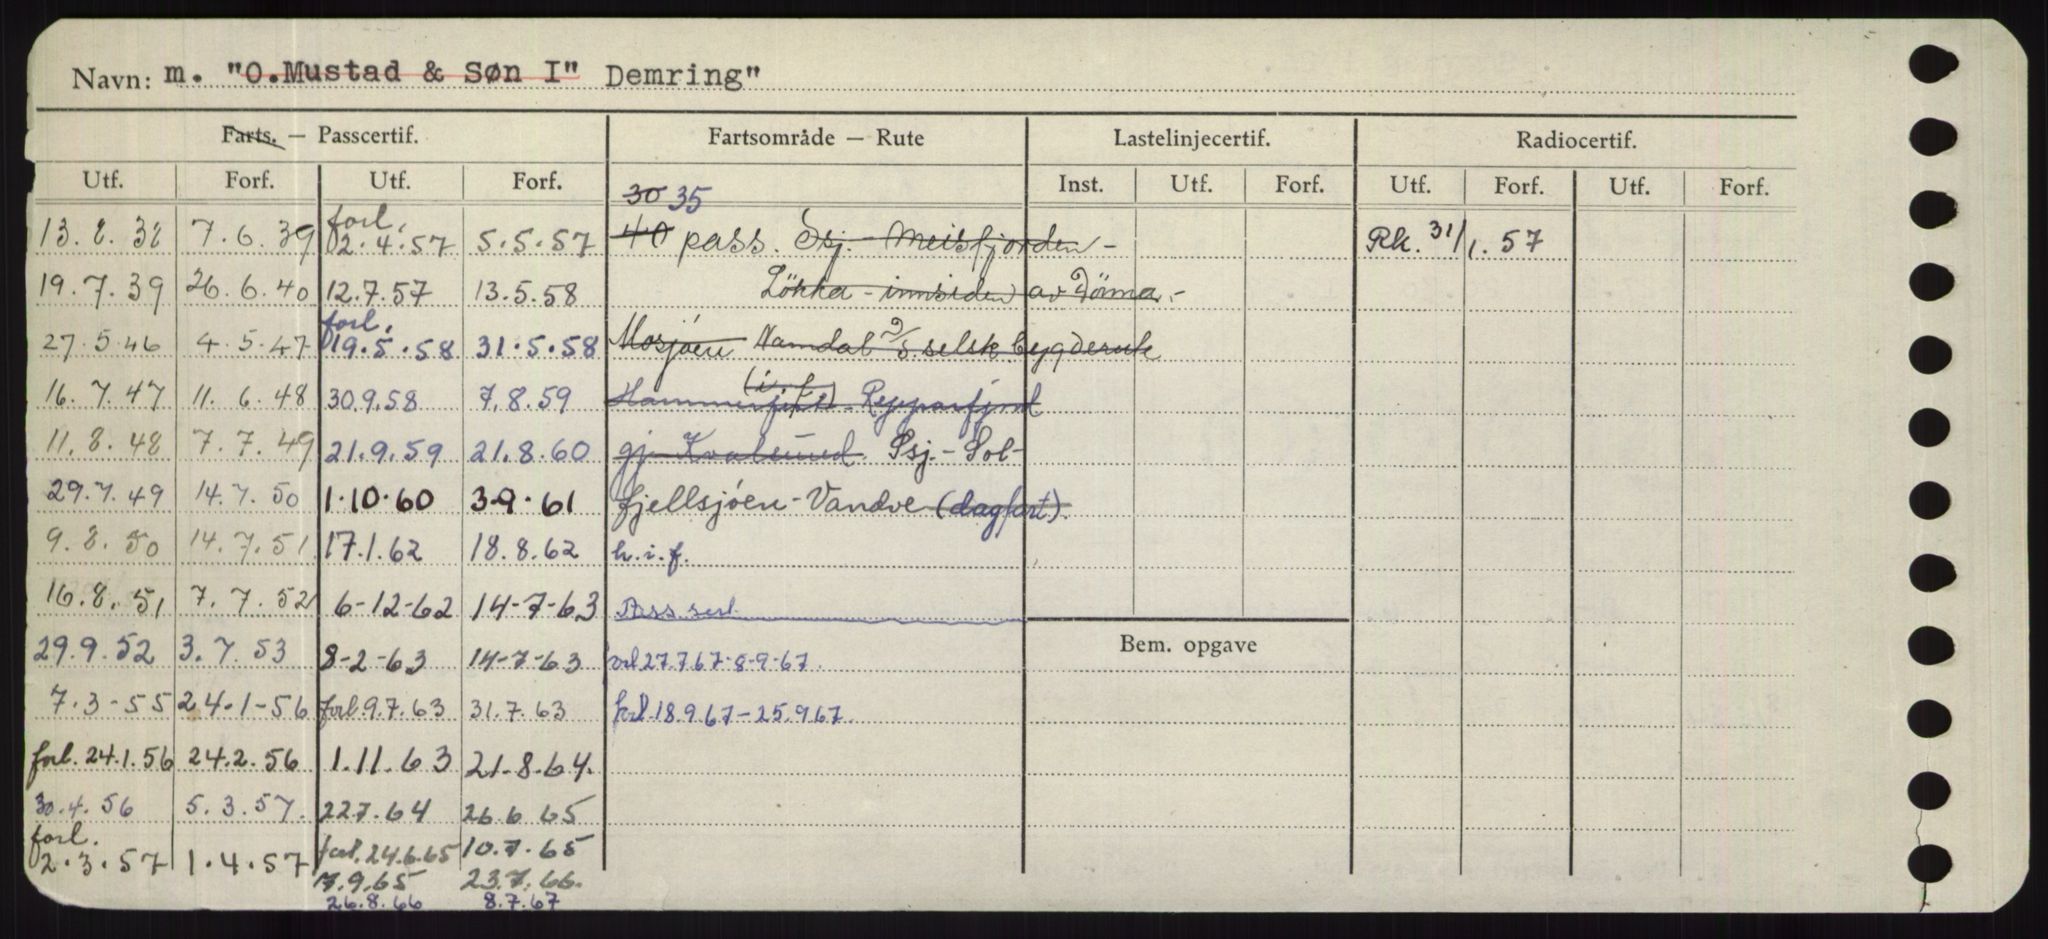 Navn: m. "O.Mustad & Søn I" Demring"
Farts. — Passcertif. Fartsområde — Rute Lastelinjecertif. Radiocertif.
Utf. Forf. Utf. Forf. 30 35 Inst. Utf. Forf. Utf. Forf. Utf. Forf.
13.8.38 7.6.39 forl. 2.4.57 5.5.57 40 pass. Ssj. - Meisfjorden - Rk. 31/1.57
19.7.39 26.6.40 12.7.57 13.5.58 Lökka - innsiden av Dönna.-
27.5.46 4.5.47 forl. 19.5.58 31.5.58 Mosjöen Namdal selsk bygderute
16.7.47 11.6.48 30.9.58 7.8.59 (i.f.) Repparfjord
11.8.48 7.7.49 21.9.59 21.8.60 gj. Kvalsund. Ssj. - Sol-
29.7.49 14.7.50 1.10.60 3.9.61 fjellsjöen - Vandve (dagfart).
9.8.50 14.7.51 17.1.62 18.8.62 h.i.f.
16.8.51 7.7.52 6-12-62 14-7-63 Pass. sert.
29.9.52 3.7.53 8-2-63 14-7-63 27.7.67-8-9-67.
7.3-55 24.1-56 forl. 9.7.63 31.7.63 forl. 18.9.67-25.9.67.
forl. 24.1.56 24.2.56 1.11.63 21.8.64.
30.4.56 5.3.57. 22.7.64 26.6.65
forl. 2.3.57 1.4.57 forl. 24.6.65 10.7.65
17.9.65 23.7.66.
26.8.66 8.7.67
Bem. opgave